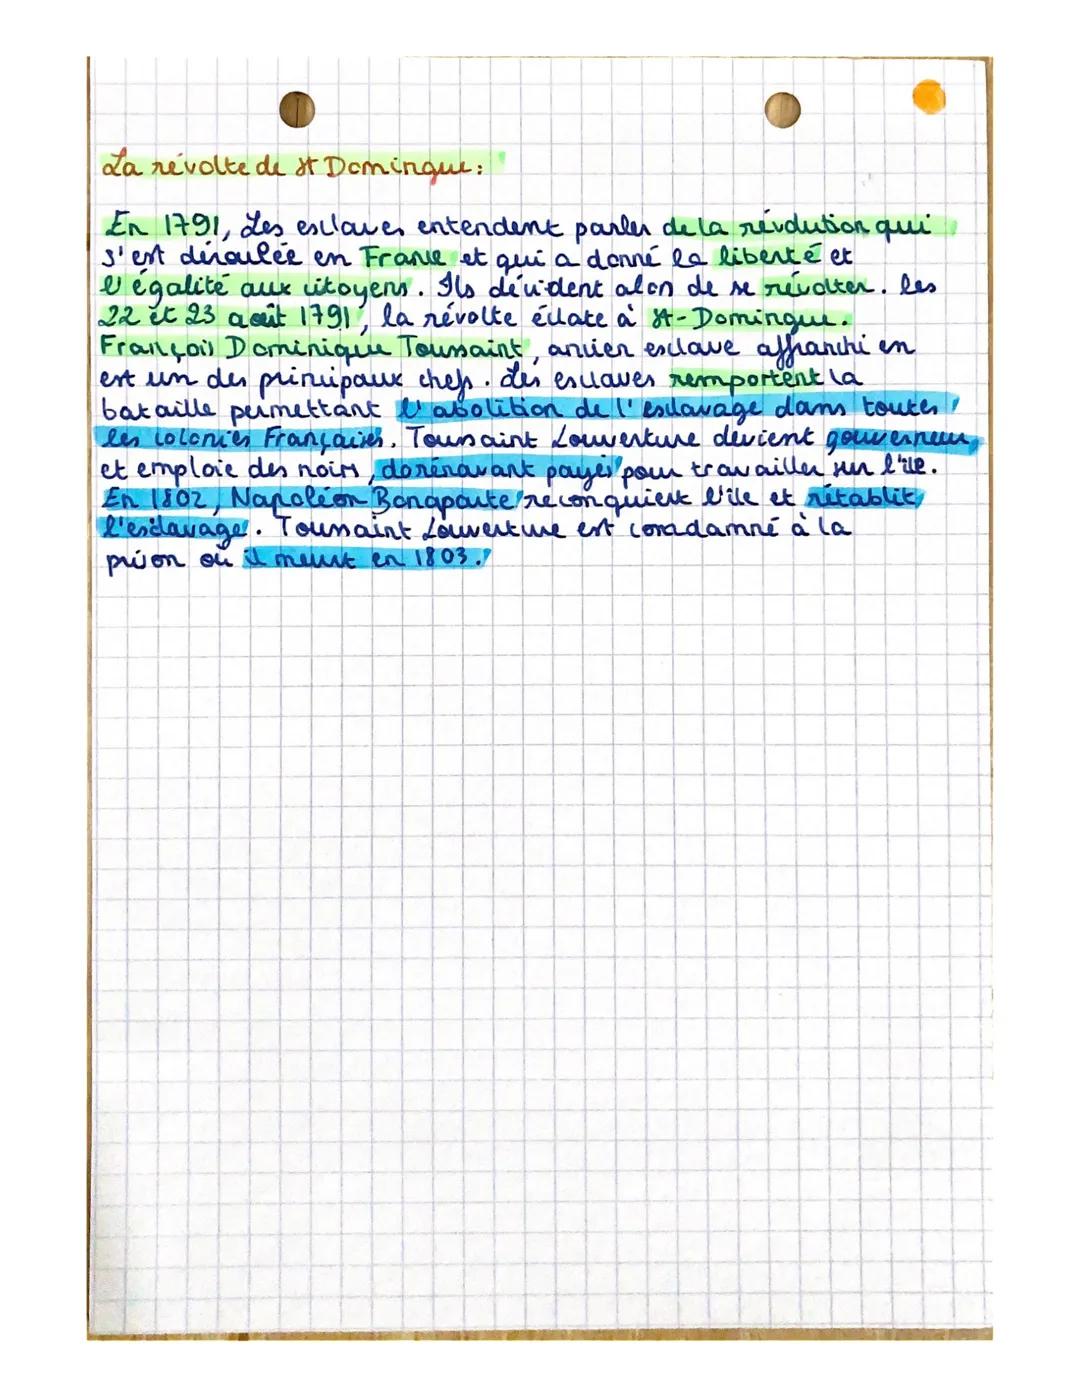 La révolte de St Domingue :
En 1791, Les esclaves entendent parler de la révolution qui
s'est déroulée en France et qui a donné la liberté et
l'égalité aux citoyens. Ils décident alors de se révolter. les
22 et 23 août 1791, la révolte éclate à St-Domingue.
François Dominique Toussaint, ancien esclave affranchi en
est un des principaux chefs. Les esclaves remportent la
bataille permettant l'abolition de l'esclavage dans toutes
les colonies Françaises. Toussaint Louverture devient gouverneur,
et emploie des noirs, dorénavant payés pour travailler sur l'île.
En 1802, Napoléon Bonaparte reconquiert l'île et rétablit
l'esclavage. Toussaint Louverture est condamné à la
prison où il meurt en 1803.